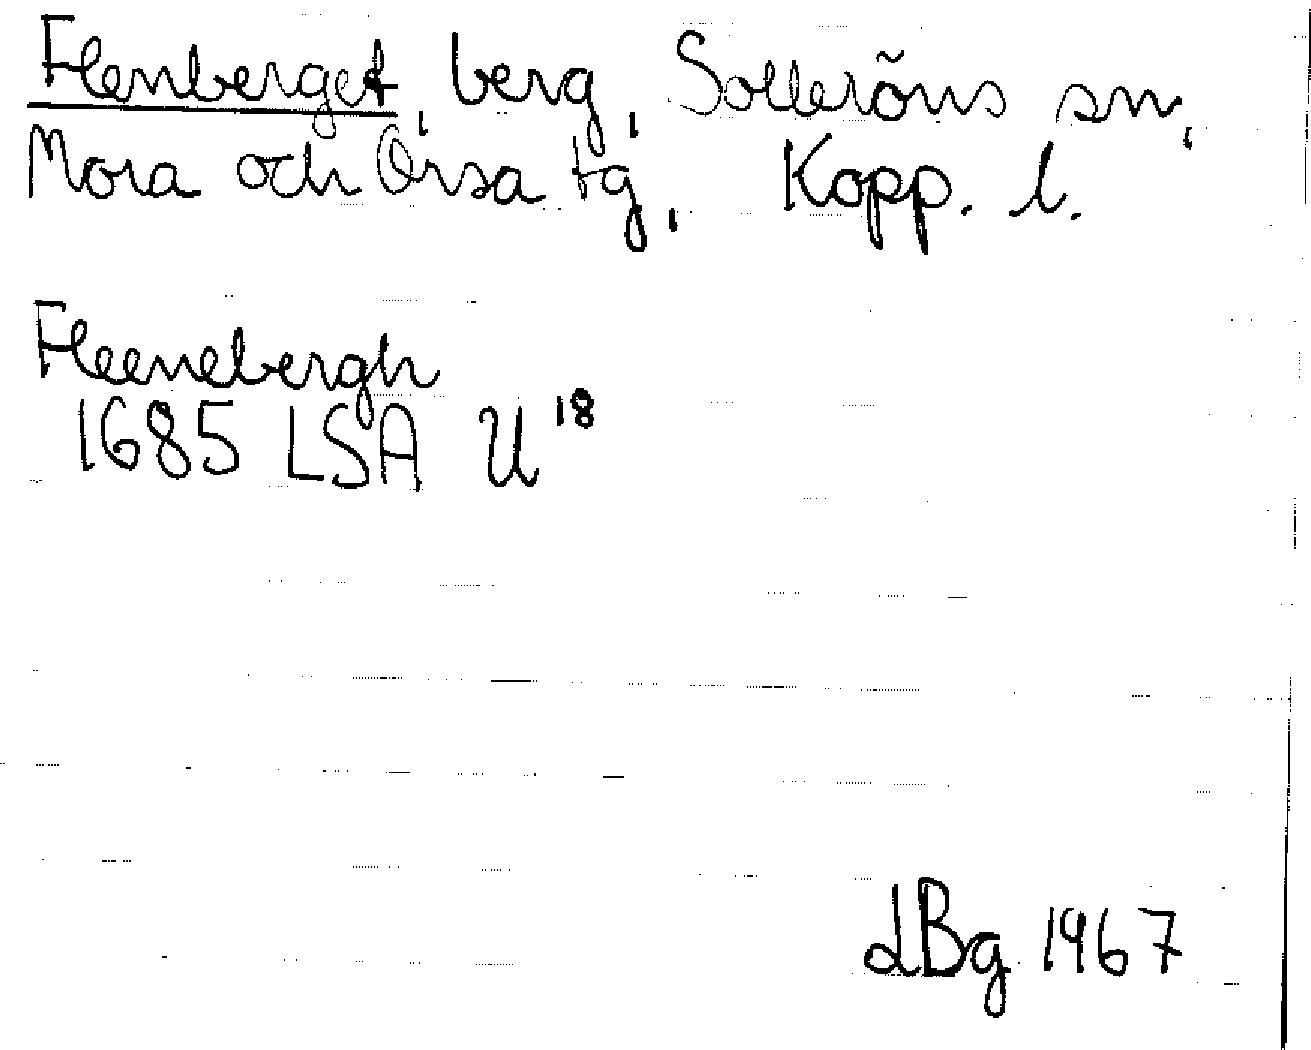 Flenberget, berg, Sollerõns sn,
Mora och Orsa tg, Kopp. l.
Fleenebergh
1685 LSA U 18
LBg 1967